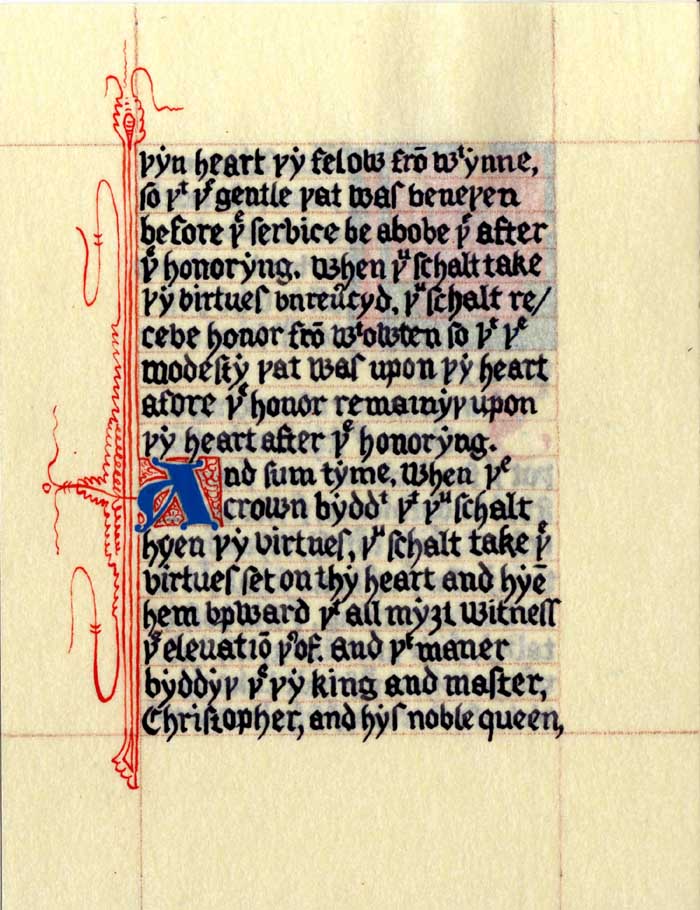 þẏn heart þẏ felow frō wᵗẏnne,
ſo þᵗ þᵉ gentle þat waſ beneþen
before þᵉ ſervice be above þᵉ after
þᵉ honorẏng. When þᵘ ſchalt take
þẏ virtueſ vnreūcyd, þᵘ ſchalt re/
ceve honor frō wᵗowten ſo þᵗ þᵉ
modeſtẏ þat waſ upon þẏ heart
afore þᵉ honor remainẏþ upon
þẏ heart after þᵉ honorẏng.
And ſum tẏme, When þᵉ
crown bẏddᵗ þᵗ þᵘ ſchalt
hẏen þẏ virtueſ, þᵘ ſchalt take þᵉ
virtueſ ſet on thẏ heart and hẏē
hem vpward þᵗ all mẏȝt Witneſſ
þᵉ elevatiō þʳof. And þᵗ maner
bẏddẏþ þᵉ þẏ king and maſter,
Chriſtopher, and hẏſ noble queen,